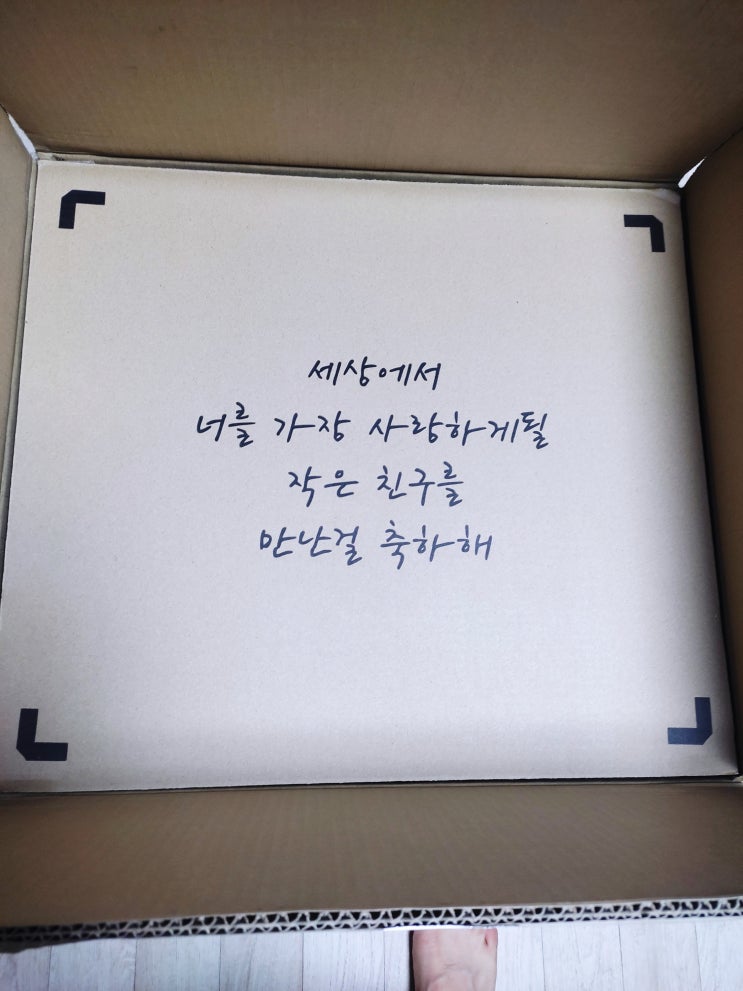 세상에서
너를 가장 사랑하게될
작은 친구를
만난걸 축하해